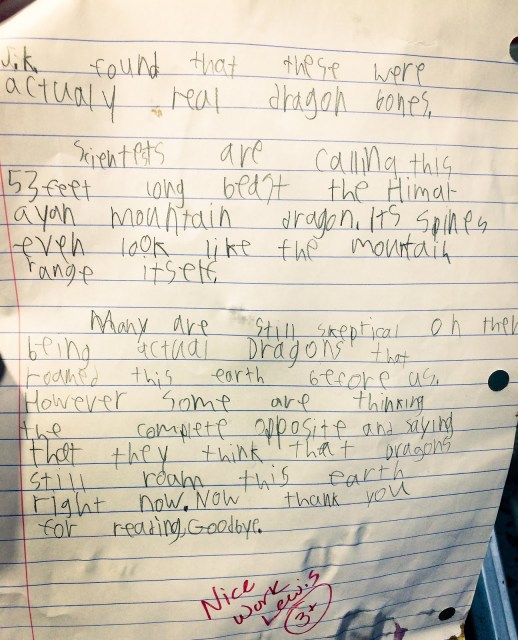 J.K. found that these were
actualy real dragon bones.
Scientests are calling this
53 feet long beast the Himal-
ayan mountain dragon. Its spines
even look like the mountain
range itself.
Many are still skeptical on
being actual Dragons that
roamed this earth before us.
However some are thinking
the complete opposite and saying
that they think that Dragons
still roam this earth
right now. Now thank you
for reading, Goodbye.
Nice
work
Lewis
3+